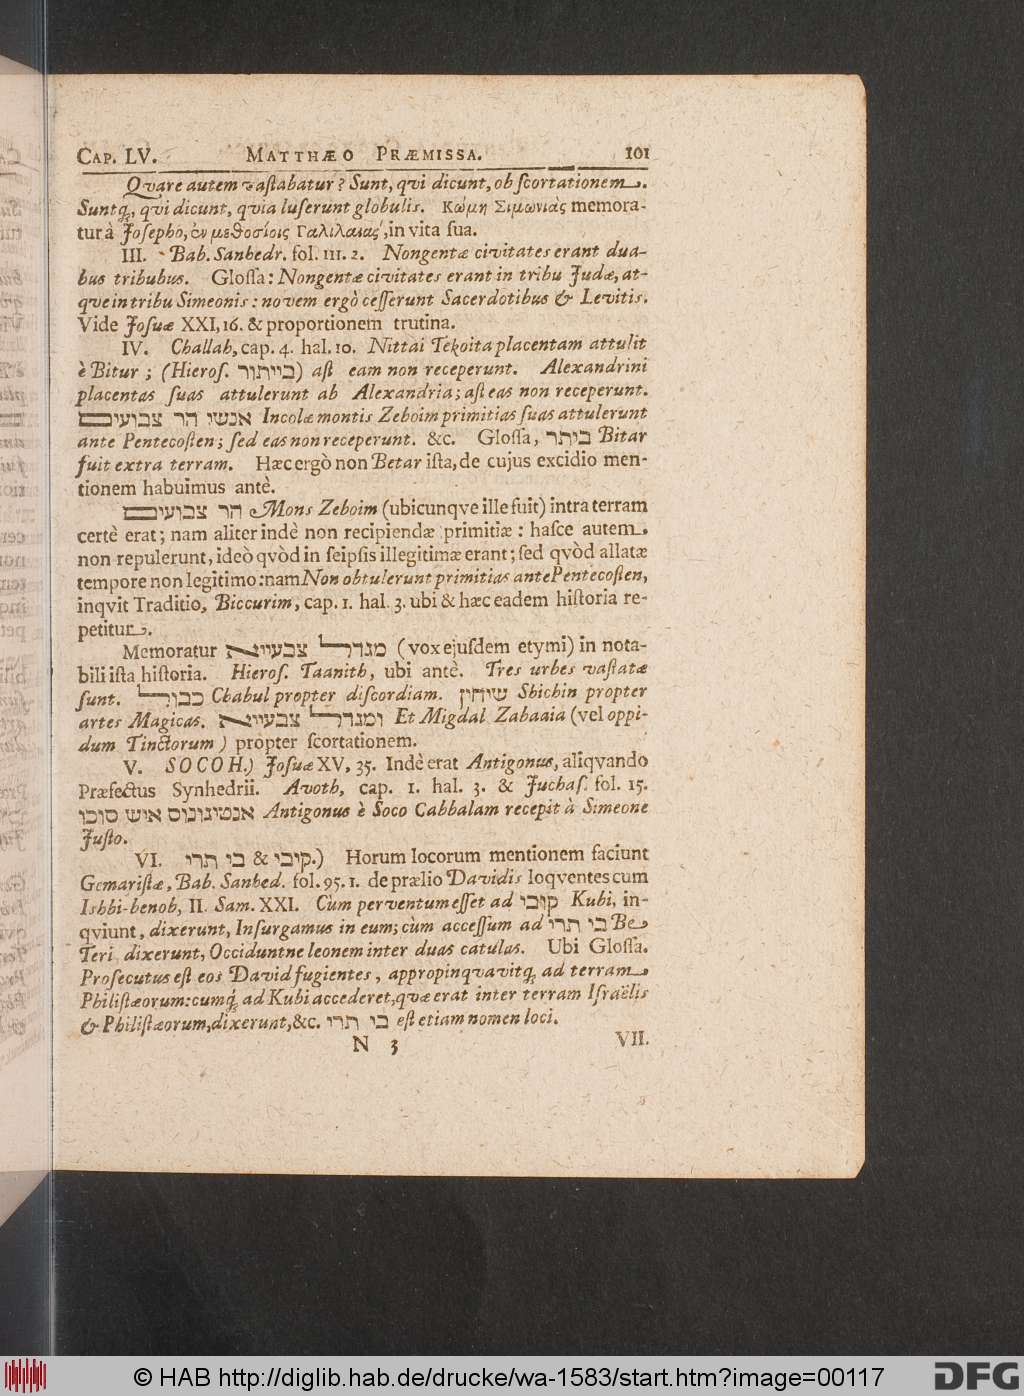 CAP. LV. MATTHÆO PRÆMISSA. 101
Qvare autem vastabatur? Sunt, qvi dicunt, ob scortationem.
Suntq;, qvi dicunt, qvia luserunt globulis. Κώμη Σιμωνιὰς memora-
tur à Josepho, ἐν μεθοσίοις Γαλιλαιας, in vita sua.
III. Bab. Sanhedr. fol. III. 2. Nongentæ civitates erant dua-
bus tribubus. Glossa: Nongentæ civitates erant in tribu Judæ, at-
qve in tribu Simeonis: novem ergò cesserunt Sacerdotibus & Levitis.
Vide Josuæ XXI, 16. & proportionem trutina.
IV. Challah, cap. 4. hal. 10. Nittai Tekoita placentam attulit
è Bitur; (Hieros. בייתור) ast eam non receperunt. Alexandrini
placentas suas attulerunt ab Alexandria; ast eas non receperunt.
אנשי הר צבועים Incolæ montis Zeboim primitias suas attulerunt
ante Pentecosten; sed eas non receperunt. &c. Glossa, ביתר Bitar
fuit extra terram. Hæc ergò non Betar ista, de cujus excidio men-
tionem habuimus antè.
הר צבועים Mons Zeboim (ubicunqve ille fuit) intra terram
certè erat; nam aliter indè non recipiendæ primitiæ: hasce autem
non repulerunt, ideò qvòd in seipsis illegitimæ erant; sed qvòd allatæ
tempore non legitimo: nam Non obtulerunt primitias ante Pentecosten,
inqvit Traditio, Biccurim, cap. 1. hal. 3. ubi & hæc eadem historia re-
petitur.
Memoratur מגדל צבעייא (vox ejusdem etymi) in nota-
bili ista historia. Hieros. Taanith, ubi antè. Tres urbes vastatæ
sunt. כבול Chabul propter discordiam. שיחין Shichin propter
artes Magicas. ומגדל צבעייא Et Migdal Zabaaia (vel oppi-
dum Tinctorum) propter scortationem.
V. SOCOH.) Josuæ XV, 35. Indè erat Antigonus, aliqvando
Præfectus Synhedrii. Avoth, cap. 1. hal. 3. & Juchas. fol. 15.
אנטיגונוס איש סוכו Antigonus è Soco Cabbalam recepit à Simeone
Justo.
VI. קיבי & בי תרי.) Horum locorum mentionem faciunt
Gemaristæ, Bab. Sanhed. fol. 95. 1. de prælio Davidis loqventes cum
Ishbi-benob, II. Sam. XXI. Cùm perventum esset ad קובי Kubi, in-
qviunt, dixerunt, Insurgamus in eum; cùm accessum ad בי תרי Be
Teri dixerunt, Occiduntne leonem inter duas catulas. Ubi Glossa.
Prosecutus est eos David fugientes, appropinqvavitq; ad terram
Philistæorum: cumq; ad Kubi accederet, qvæ erat inter terram Israëlis
& Philistæorum, dixerunt, &c. בי תרי est etiam nomen loci.
N 3 VII.
© HAB http://diglib.hab.de/drucke/wa-1583/start.htm?image=00117 DFG